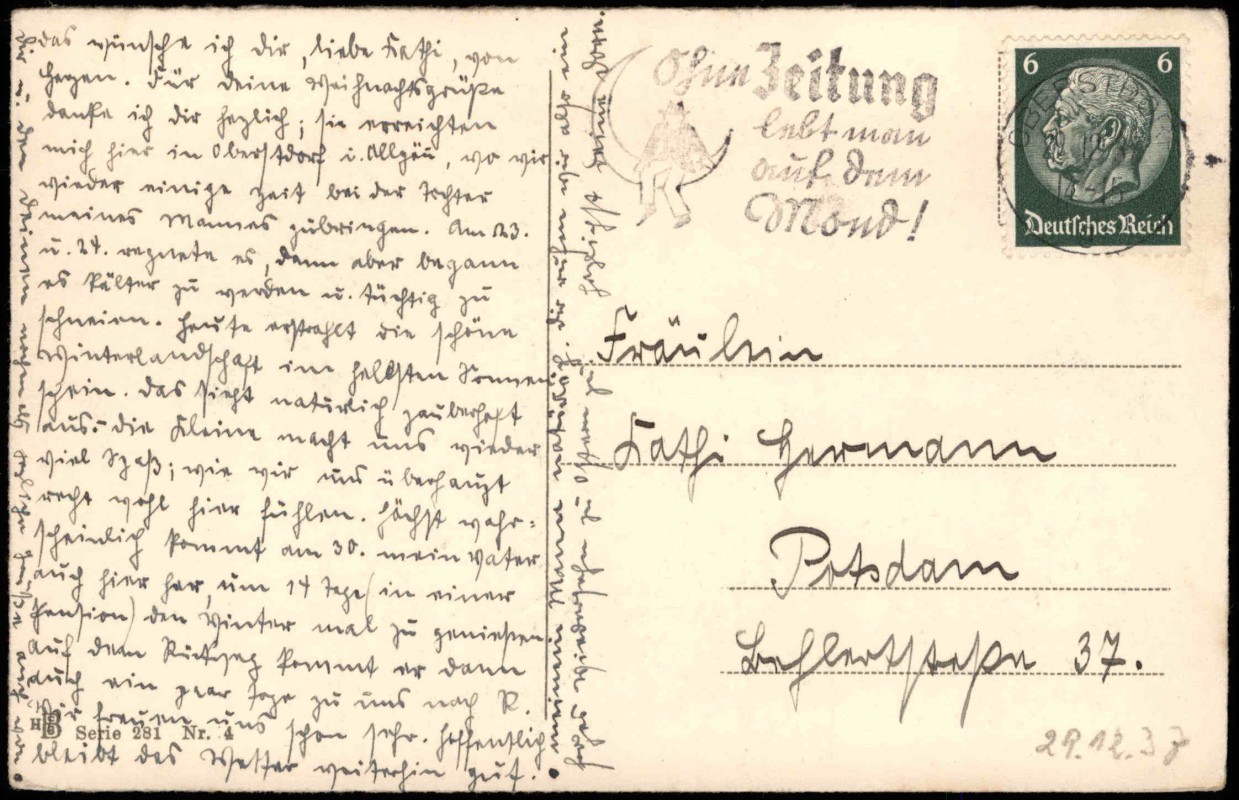 das wünsche ich dir, liebe Kathi, von
Herzen. Für deine Weihnachtsgrüße
danke ich dir herzlich; sie erreichten
mich hier in Oberstdorf i. Allgäu, wo wir
wieder einige Zeit bei der Tochter
meines Mannes zubringen. Am 23.
u. 24. regnete es, dann aber begann
es kälter zu werden u. tüchtig zu
schneien. Heute erstrahlt die schöne
Winterlandschaft im hellsten Sonnen
schein. Das sieht natürlich zauberhaft
aus. Die Kleine macht uns wieder
viel Spaß; wie wir uns überhaupt
recht wohl hier fühlen. Höchst wahr-
scheinlich kommt am 30. mein Vater
auch hier her, um 14 Tage (in einer
Pension) den Winter mal zu genießen.
Auf dem Rückweg kommt er dann
auch ein paar Tage zu uns nach R.
Wir freuen uns schon sehr. Hoffentlich
bleibt das Wetter weiterhin gut.
Dir u. den Deinen nochmals Grüße auch von
HB Serie 281 Nr. 4
Ohne Zeitung
lebt man
auf dem
Mond!
OBERSTDO
6 6
Deutsches Reich
Fräulein
Kathi Hermann
Potsdam
Behlertstraße 37.
29.12.37